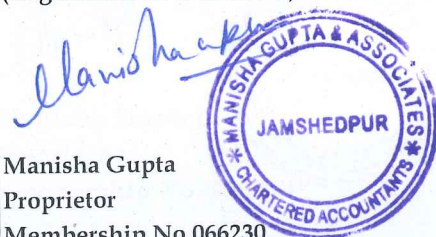 Manisha Gupta
MANISHA GUPTA & ASSOCIATES
JAMSHEDPUR
* CHARTERED ACCOUNTANTS *
Manisha Gupta
Proprietor
Membership No.066230